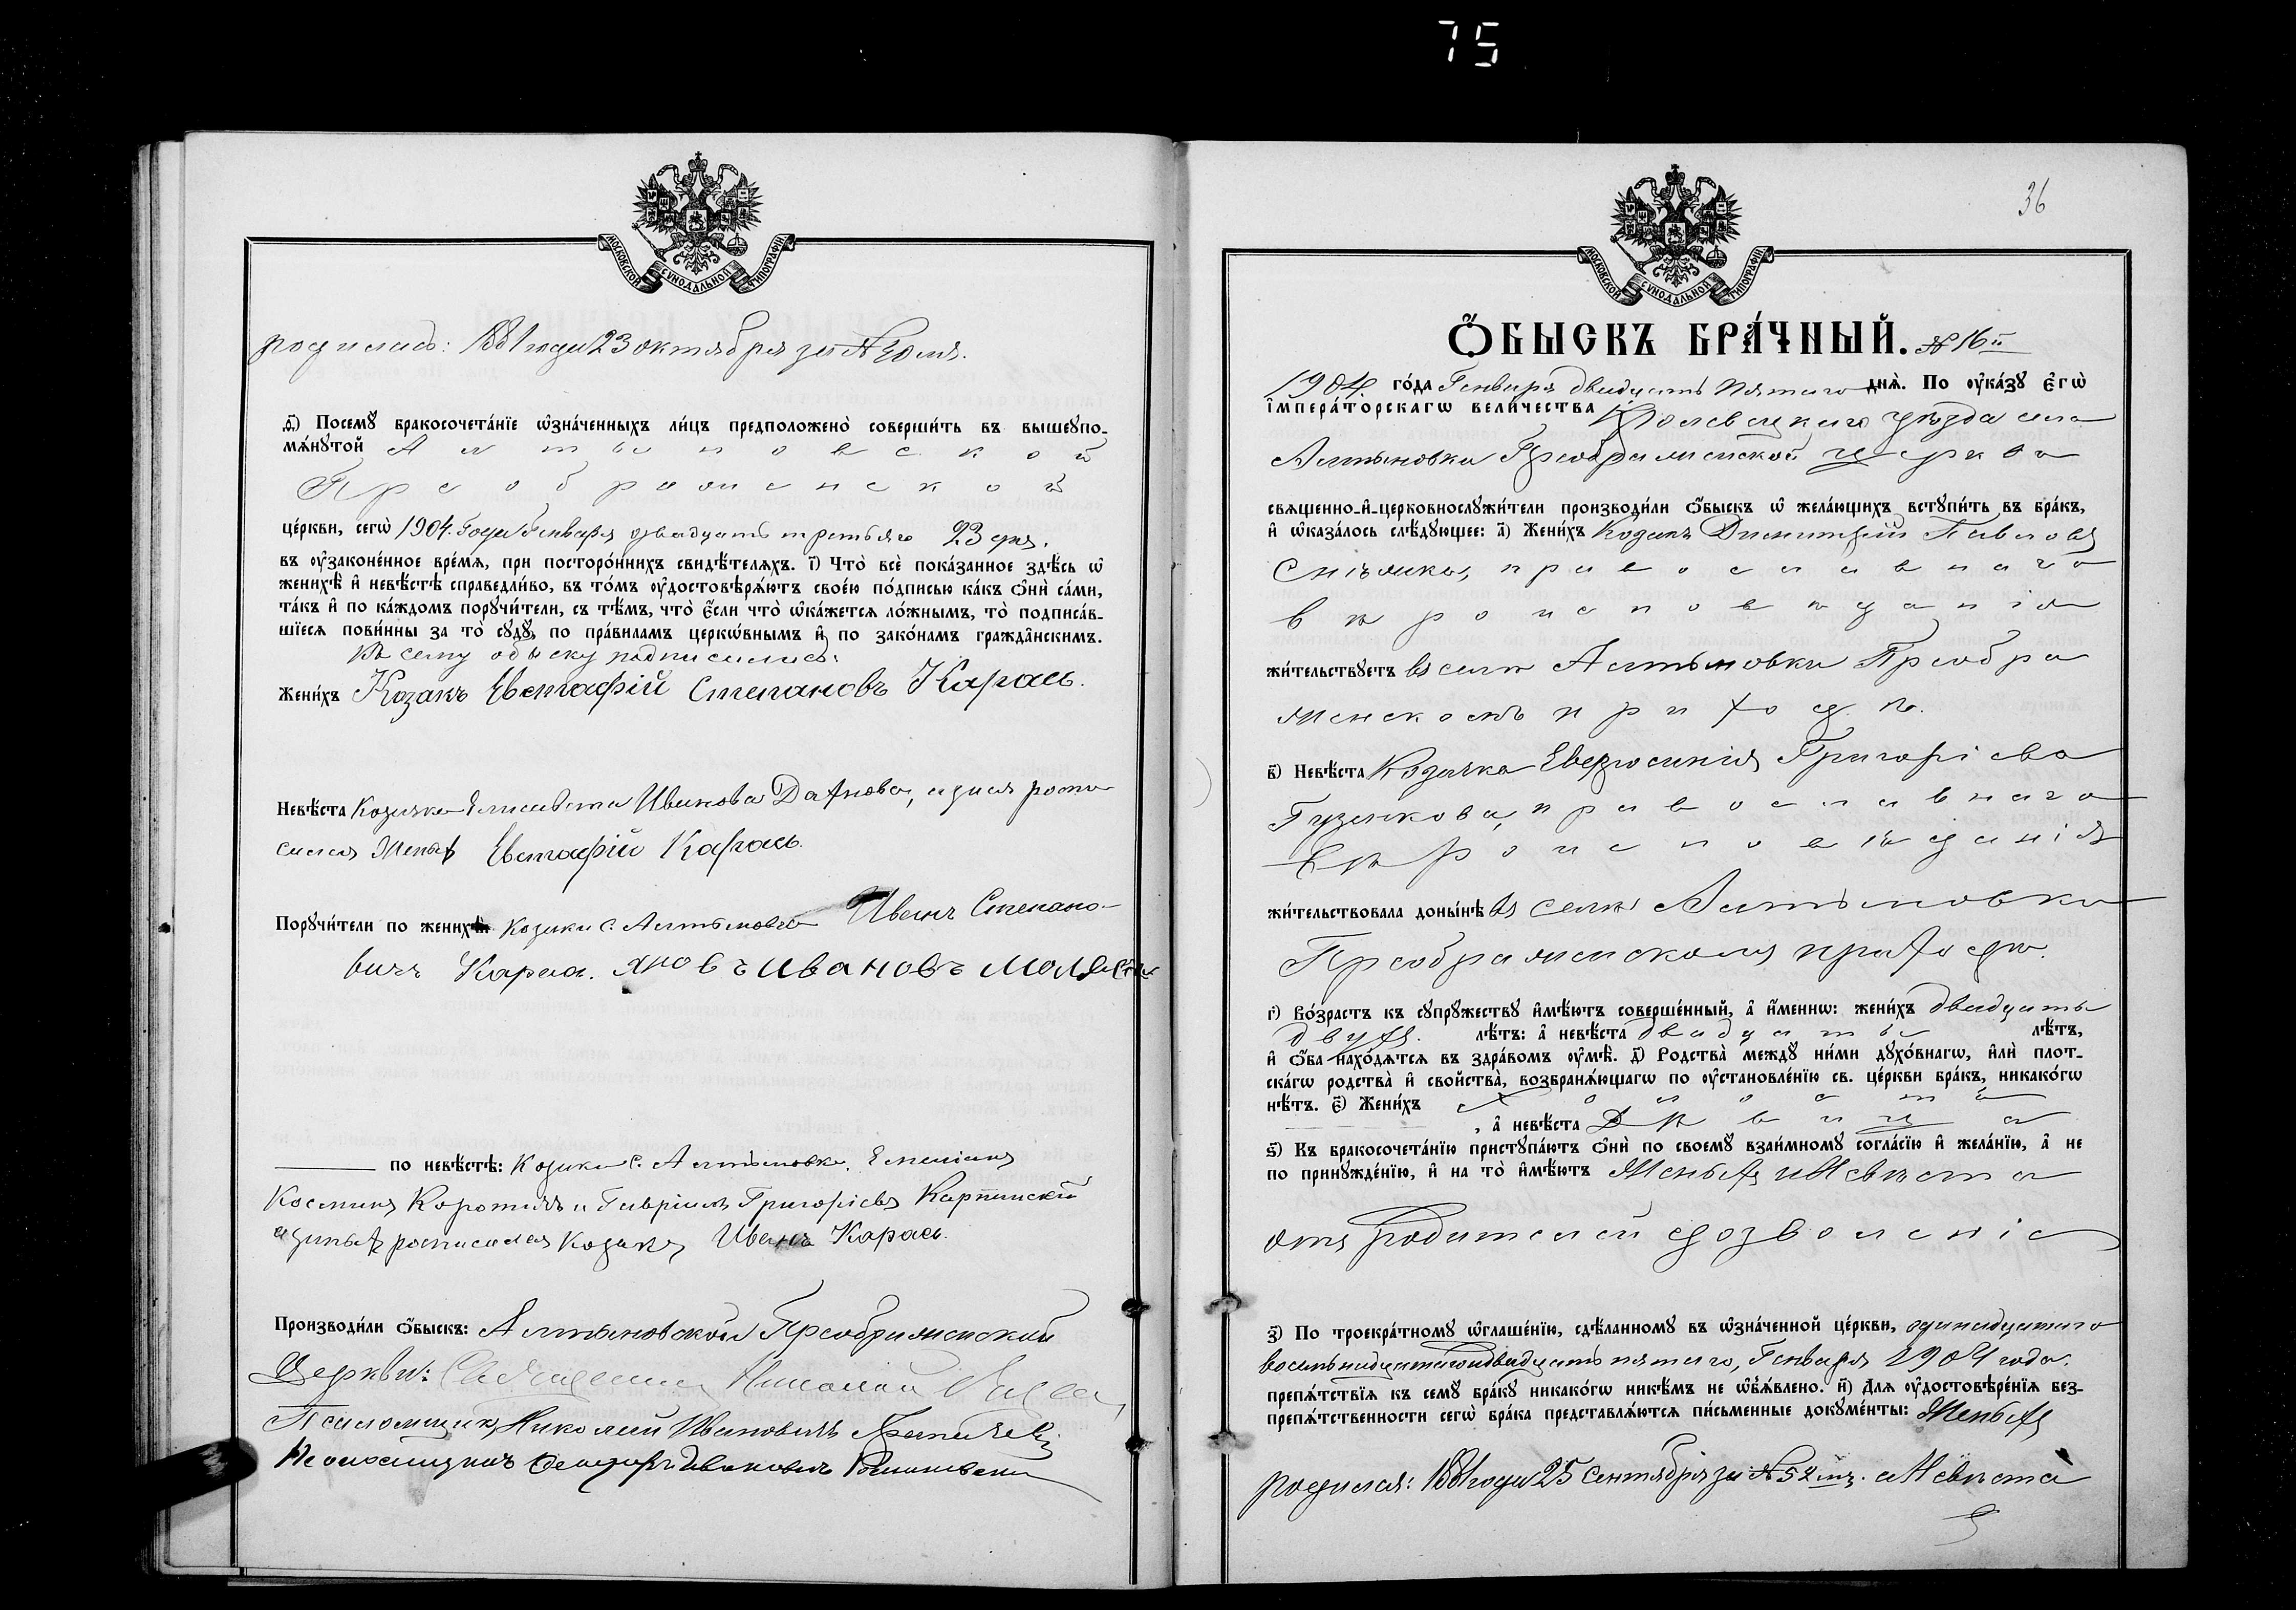 75
МОСКОВСКОЙ СѴНОДАЛЬНОЙ ТИПОГРАФІИ
родилась: 1881 года 23 октября за №
д҃) Посемꙋ бракосочета́нїе ѡ҆зна́ченныхъ ли́цъ предположено̀ соверши́ть въ вышеꙋпо-
мѧ́нꙋтой Алтыновской
Преображенской
це́ркви, сегѡ̀ 1904. Года Генваря двадцать третьяго 23 дня.
въ ᲂу҆законе́нное вре́мѧ, при посторо́ннихъ свидѣ́телѧхъ. і҃) Что̀ всѐ пока́занное здѣ́сь ѡ҆
женихѣ̀ и҆ невѣ́стѣ справедли́во, въ то́мъ ᲂу҆достовѣрѧ́ютъ свое́ю по́дписью ка́къ ѻ҆нѝ са́ми,
та́къ и҆ по ка́ждомъ порꙋчи́тели, съ тѣ́мъ, что̀ є҆́сли что̀ ѡ҆ка́жетсѧ ло́жнымъ, то̀ подписа́в-
шїесѧ пови́нны за то̀ сꙋдꙋ̀, по пра́виламъ церкѡ́внымъ и҆ по зако́намъ гражда̑нскимъ.
Къ сему обыску подписались:
Жени́хъ Козакъ Евстафій Степановъ Карась.
Невѣ́ста Козачка Елисавета Иванова Дахнова, а за нея роспи
сался Женихъ Евстафій Карась.
Порꙋчи́тели по женихѣ̀ Козаки с. Алтыновка Иванъ Степано-
вичъ Карась. Яковъ Ивановъ
по невѣ́стѣ: Козаки с. Алтыновка, Емеліанъ
Косминъ и Гавріилъ Григоріевъ Карпинскій
а за нихъ росписался Козакъ Иванъ Карась.
Производи́ли ѻ҆́быскъ: Алтыновской Преображенской
Церкви: Священникъ Николай
Псаломщикъ Николай Ивановичъ
Псаломщикъ Ивановичъ
36
МОСКОВСКОЙ СѴНОДАЛЬНОЙ ТИПОГРАФІИ
Ѻ҆́БЫСКЪ БРА́ЧНЫЙ. № 16й
1904. го́да Генваря двадцать пятаго днѧ̀. По ᲂу҆ка́зꙋ є҆гѡ̀
і҆мпера́торскагѡ вели́чества Кролевецкаго уѣзда села
Алтыновки Преображенской церкви
свѧщенно-и҆-церковнослꙋжи́тели производи́ли ѻ҆́быскъ ѡ҆ жела́ющихъ встꙋпи́ть въ бра́къ,
и҆ ѡ҆каза́лось слѣ́дꙋющее: а҃) Жени́хъ Козакъ Димитрій Павловъ
православнаго
вѣроисповѣданія
жи́тельствꙋетъ въ селѣ Алтыновки Преобра
женскомъ приходѣ.
в҃) Невѣ́ста Козачка Евфросинія Григорієва
православнаго
вѣроисповѣданія
жи́тельствовала доны́нѣ въ селѣ Алтыновки
Преображенскомъ приходѣ.
г҃) Во́зрастъ къ сꙋпрꙋ́жествꙋ и҆мѣ́ютъ соверше́нный, а҆ и҆́меннѡ: жени́хъ двадцать
двухъ. лѣ́тъ: а҆ невѣ́ста двадцать лѣ́тъ,
и҆ ѻ҆́ба нахо́дѧтсѧ въ здра́вомъ ᲂу҆мѣ̀. д҃) Родства̀ междꙋ̀ ни́ми дꙋхо́внагѡ, и҆лѝ плот-
ска́гѡ родства̀ и҆ свойства̀, возбранѧ́ющагѡ по ᲂу҆становле́нїю св. це́ркви бра́къ, никако́гѡ
нѣ́тъ. є҃) Жени́хъ холостъ
, а҆ невѣ́ста Дѣвица
ѕ҃) Къ бракосочета́нїю пристꙋпа́ютъ ѻ҆нѝ по своемꙋ̀ взаи́мномꙋ согла́сїю и҆ жела́нїю, а҆ не
по принꙋжде́нїю, и҆ на то̀ и҆мѣ́ютъ Женихъ и Невѣста
отъ Родителей дозволеніе
з҃) По троекра́тномꙋ ѡ҆глаше́нїю, сдѣ́ланномꙋ въ ѡ҆зна́ченной це́ркви, одинадцатаго
восемнадцатаго и двадцать пятаго, Генваря 1904 года.
препѧ́тствїѧ къ семꙋ̀ бра́кꙋ никако́гѡ никѣ́мъ не ѡ҆б̾ѧ́влено. и҃) Длѧ ᲂу҆достовѣре́нїѧ без-
препѧ́тственности сегѡ̀ бра́ка представлѧ́ютсѧ пи́сьменные докꙋме́нты: Женихъ
родился: 1881 года 25 Сентября за № 52 мъ. а Невѣста